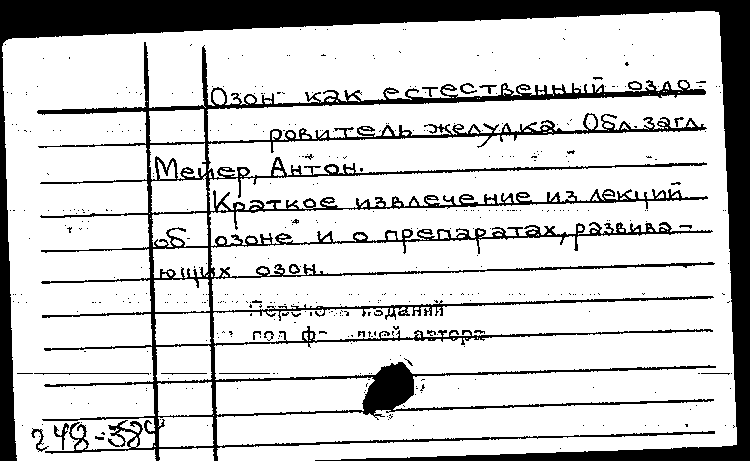 Озон как естественный оздо-
ровитель желудка. Обл. загл.
Мейер, Антон.
Краткое извлечение из лекций
об озоне и о препаратах, развива-
ющих озон.
изданий
под автора
248-58